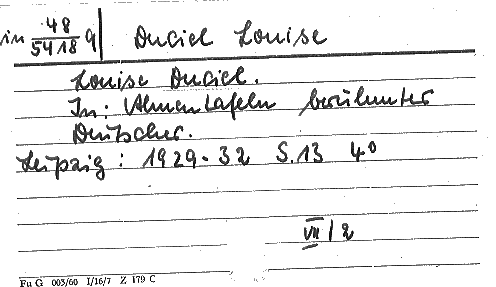 in 48/5418 q Duciel Louise
Louise Duciel.
In: Ahnentafeln berühmter
Deutscher.
Leipzig: 1929-32 S.13 4°
VII/2
Fu G 003/60 I/16/7 Z 179 C